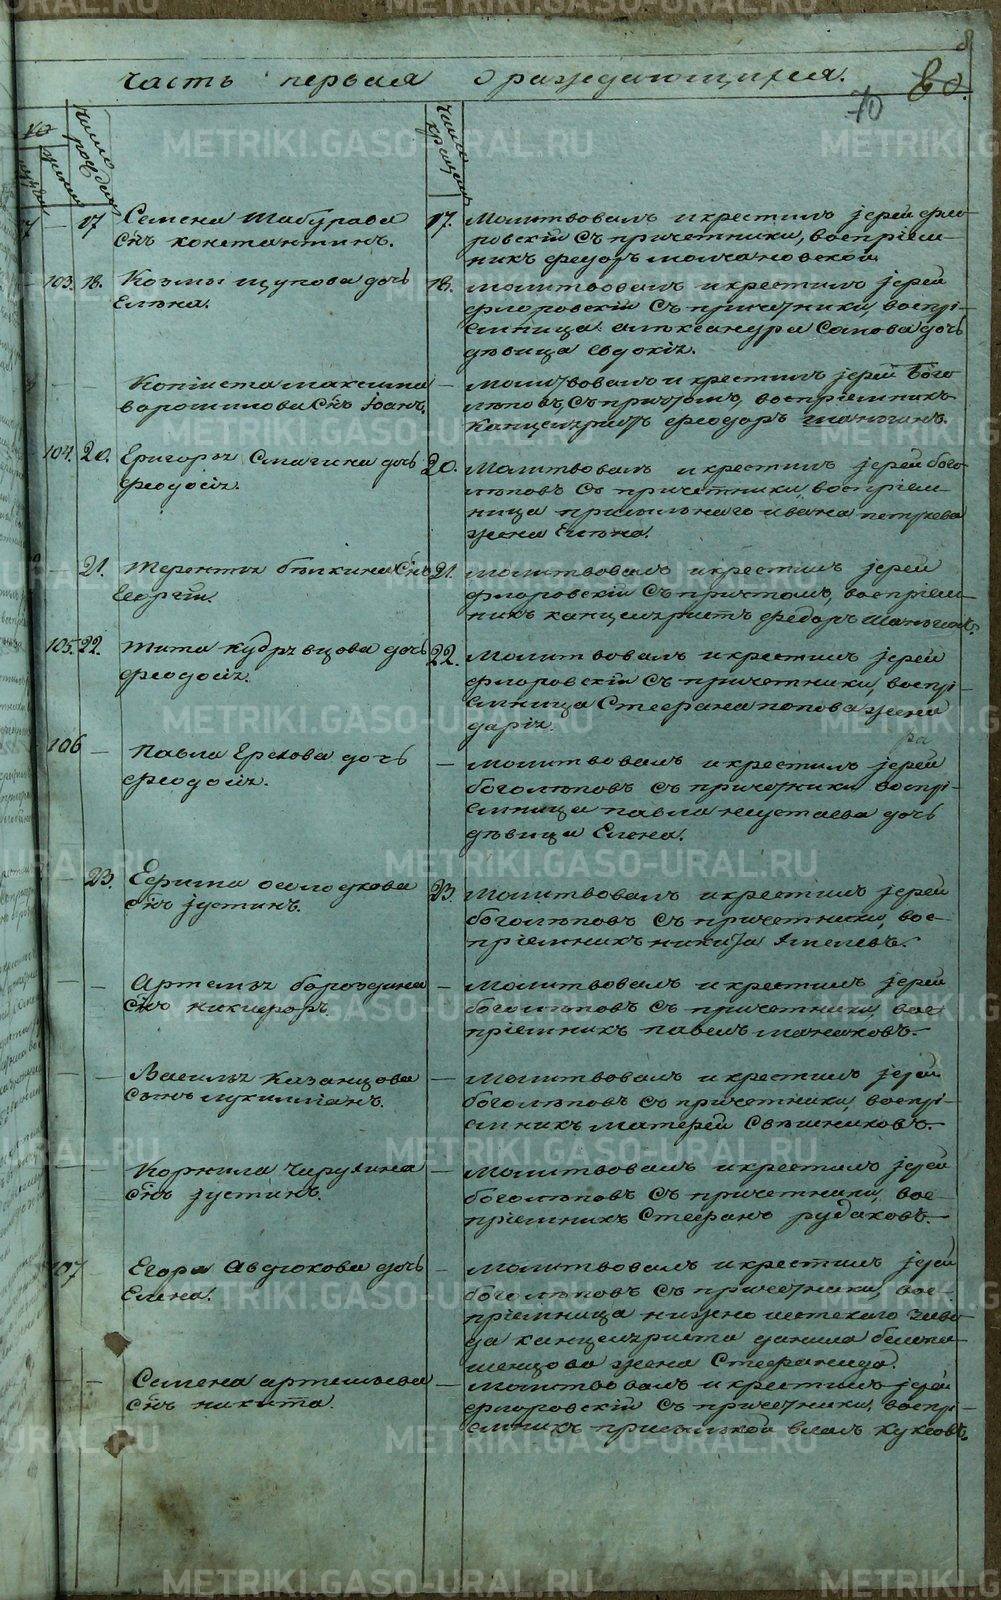 часть первая о раждающихся.
70
80.
число рожден
число крещен
17
Семена Шабурова
сн҃ъ константинъ.
17.
Молитвовалъ и крестилъ іерей фло-
ровскій съ причетники, воспріем-
никъ федоръ молчановской.
103.
18.
Козмы щупова дочь
Елѣна.
18.
молитвовалъ и крестилъ іерей
флоровскій съ причетники, воспрі-
емница александра Сомова дочь
дѣвица евдокія.
—
—
Копіиста максима
ворошилова сн҃ъ іоанъ.
—
молитвовалъ и крестилъ іерей бого
лѣповъ, съ причтомъ, воспріемникъ
канцеляристъ феодоръ шаньгинъ.
104.
20.
Григорья Смагина дочь
феодосія.
20.
Молитвовалъ и крестилъ іерей бого-
лѣповъ съ причетники, воспріем-
ница ивана
жена Елѣна.
—
21.
терентья бѣлкина сн҃ъ
Георгій.
21.
молитвовалъ и крестилъ іерей
флоровскій съ причтомъ, воспріем-
никъ канцеляристъ федоръ шаньгинъ.
105.
22.
тита кудрявцова дочь
феодосія.
22.
Молитвовалъ и крестилъ іерей
флоровскій съ причетники, воспрі-
емница Стефана попова жена
дарія.
106
—
павла Ершова дочь
феодосія.
—
молитвовалъ и крестилъ іерей
боголѣповъ съ причетники воспрі-
емница павла дочь
дѣвица Елена.
—
23.
Ефима осолодкова
сн҃ъ іустинъ.
23.
молитвовалъ и крестилъ іерей
боголѣповъ съ причетники, вос-
пріемникъ никита
—
—
Артемья бороздина
сн҃ъ никифоръ.
—
молитвовалъ и крестилъ іерей
боголѣповъ съ причетники, вос-
пріемникъ павелъ манаковъ.
—
—
Василья казанцова
сынъ лукилліанъ.
—
молитвовалъ и крестилъ іерей
боголѣповъ съ причетники, воспрі-
емникъ матфей Свѣшниковъ.
—
—
Корнила
сн҃ъ іустинъ.
—
молитвовалъ и крестилъ іерей
боголѣповъ съ причетники, вос-
пріемникъ Стефанъ рудаковъ.
107
—
Егора Авдюкова дочь
Елена.
—
Молитвовалъ и крестилъ іерей
боголѣповъ съ причетники, вос-
пріемница нижно исетскаго заво
да канцеляриста данила
жена Стефанида.
—
—
Семена артемьева
сн҃ъ никита.
—
молитвовалъ и крестилъ іерей
флоровскій съ причетники, воспрі-
емникъ власъ
METRIKI.GASO-URAL.RU